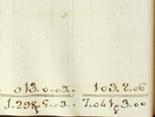 013.0.03. 103.2.06
1.298 5.03. 7.041 3.00